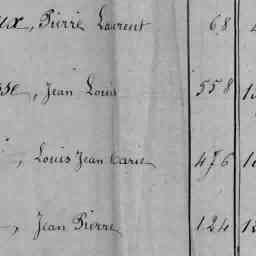 ux, Pierre Laurent 68
sse, Jean Louis 558
, Louis Jean Marie 476
, Jean Pierre 124